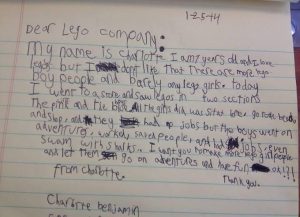 1-25-14
Dear Lego company:
My name is Charlotte. I am 7 years old and I love
legos but I don't like that there are more lego
boy people and barely any lego girls. today
I went to a store and saw legos in two sections
the pink and the blue. All the girls did was sit at home, go to the beach,
and shop, and they had no jobs but the boys went on
adventures, worked, saved people, and had jobs, even
swam with sharks. I want you to make more lego girl people
and let them go on adventures and have fun ok!?!
Thank you.
from Charlotte.
Charlotte Benjamin